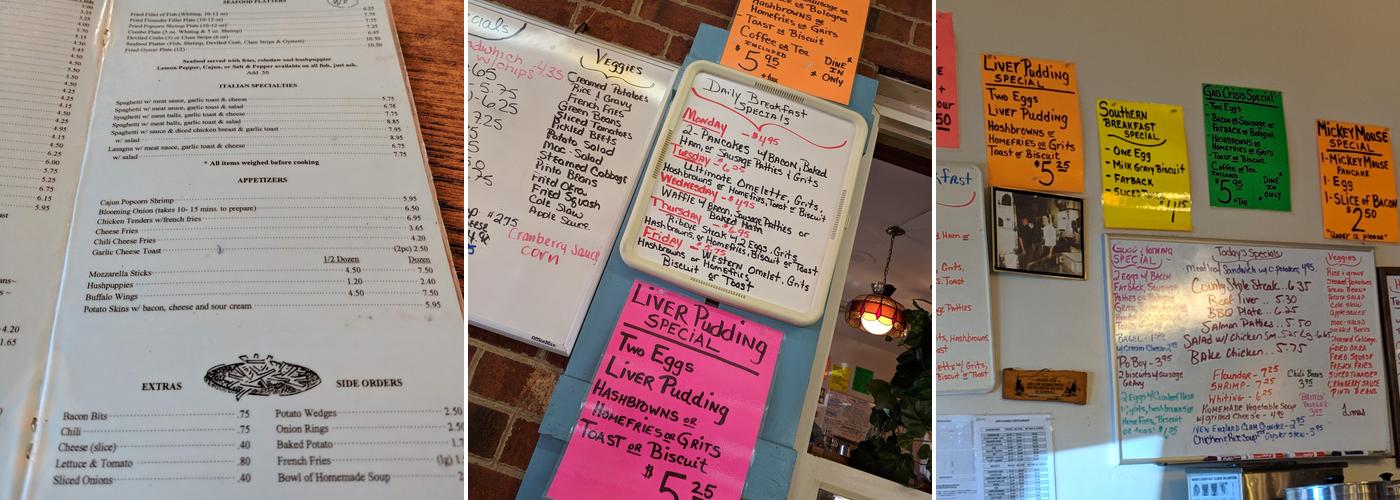 SEAFOOD PLATTERS
Fried Fillet of Fish (Whiting, 10-12 oz) 6.25
Fried Flounder Fillet Plate (10-12 oz) 7.75
Fried Popcorn Shrimp Plate (10-12 oz) 7.25
Combo Plate (5 oz. Whiting & 5 oz. Shrimp) 6.45
Deviled Crabs (3) or Clam Strips (6 oz)
Seafood Platter (Fish, Shrimp, Deviled Crab, Clam Strips & Oysters) 10.50
Fried Oyster Plate (12) 10.50
Seafood served with fries, coleslaw and hushpuppies
Lemon Pepper, Cajun, or Salt & Pepper available on all fish, just ask.
Add .50
ITALIAN SPECIALTIES
Spaghetti w/ meat sauce, garlic toast & cheese 5.75
Spaghetti w/ meat sauce, garlic toast & salad 6.75
Spaghetti w/ meat balls, garlic toast & cheese 7.75
Spaghetti w/ meat balls, garlic toast & salad 8.85
Spaghetti w/ sauce & diced chicken breast & garlic toast 7.95
w/ salad 8.95
Lasagna w/ meat sauce, garlic toast & cheese 6.75
w/ salad 7.75
* All items weighed before cooking
APPETIZERS
Cajun Popcorn Shrimp 5.95
Blooming Onion (takes 10- 15 mins. to prepare) 6.50
Chicken Tenders w/french fries 6.95
Cheese Fries 3.65
Chili Cheese Fries 4.20
Garlic Cheese Toast (2pc) 2.50
1/2 Dozen Dozen
Mozzarella Sticks 4.50 7.50
Hushpuppies 1.20 2.40
Buffalo Wings 4.50 7.50
Potato Skins w/ bacon, cheese and sour cream 5.95
EXTRAS
Bacon Bits .75
Chili .75
Cheese (slice) .40
Lettuce & Tomato .80
Sliced Onions .40
SIDE ORDERS
Potato Wedges 2.50
Onion Rings 2.50
Baked Potato
French Fries (lg)
Bowl of Homemade Soup
Veggies
Creamed Potatoes
Rice & Gravy
French Fries
Green Beans
Sliced Tomatoes
Pickled Beets
Potato Salad
Mac-Salad
Steamed Cabbage
Pinto Beans
Fried Okra
Fried Squash
Cole Slaw
Apple Sauce
Cranberry Sauce
Corn
OfficeMax
or Bologna
Hashbrowns or
Homefries or Grits
- Toast or Biscuit
Coffee or Tea
INCLUDED
$5.95
+tax
DINE
IN
Only
Daily Breakfast
Specials
Monday - $4.95
2-Pancakes w/Bacon, Baked
Ham, or Sausage Patties & Grits
Tuesday
Ultimate Omelette, Grits,
Hashbrowns or Homefries, Toast or Biscuit
Wednesday - $4.95
Waffle w/ Bacon, Sausage Patties or
Baked Ham
Thursday - $6.95
Ribeye Steak w/ 2 Eggs, Grits,
Hashbrowns, or Homefries, Biscuit or Toast
Friday - $5.75
Western Omelet, Grits
Hashbrowns or Homefries
Biscuit or Toast
Liver Pudding
SPECIAL
Two Eggs
Liver Pudding
Hashbrowns or
Homefries or Grits
Toast or Biscuit
$5.25
Liver Pudding
SPECIAL
Two Eggs
Liver Pudding
Hashbrowns or
Homefries or Grits
Toast or Biscuit
$5.25
Southern
Breakfast
SPECIAL
- One Egg
- Milk Gravy Biscuit
- Fatback
Gas Crisis Special
- Two Eggs
- Bacon or Sausage or
Fatback or Bologna
- Hashbrowns or
Homefries or Grits
- Toast or Biscuit
Coffee or Tea
INCLUDED
$5.95
+ TAX
DINE
IN
ONLY
Mickey Mouse
SPECIAL
1-Mickey
Pancake
1-Egg
1-Slice of Bacon
$2.50
Good Morning
SPECIAL
2 Eggs w/ Bacon
Po Boy - 3.95
2 biscuits w/ sausage
Gravy
Today's Specials
Country Style Steak.. 6.35
Beef liver.. 5.30
BBQ Plate.. 6.25
Salmon Patties.. 5.50
Bake Chicken.. 5.75
Flounder - 7.25
Shrimp - 7.25
Whiting - 6.25
HOMEMADE Vegetable Soup
w/ grilled Cheese
Chicken Rice Soup
Oyster stew
Chili Beans
Veggies
Rice & gravy
Potato Salad
Cole slaw
Applesauce
mac-salad
Fried okra
Fried squash
French fries
Sliced tomatoes
Cranberry Sauce
Pinto Beans